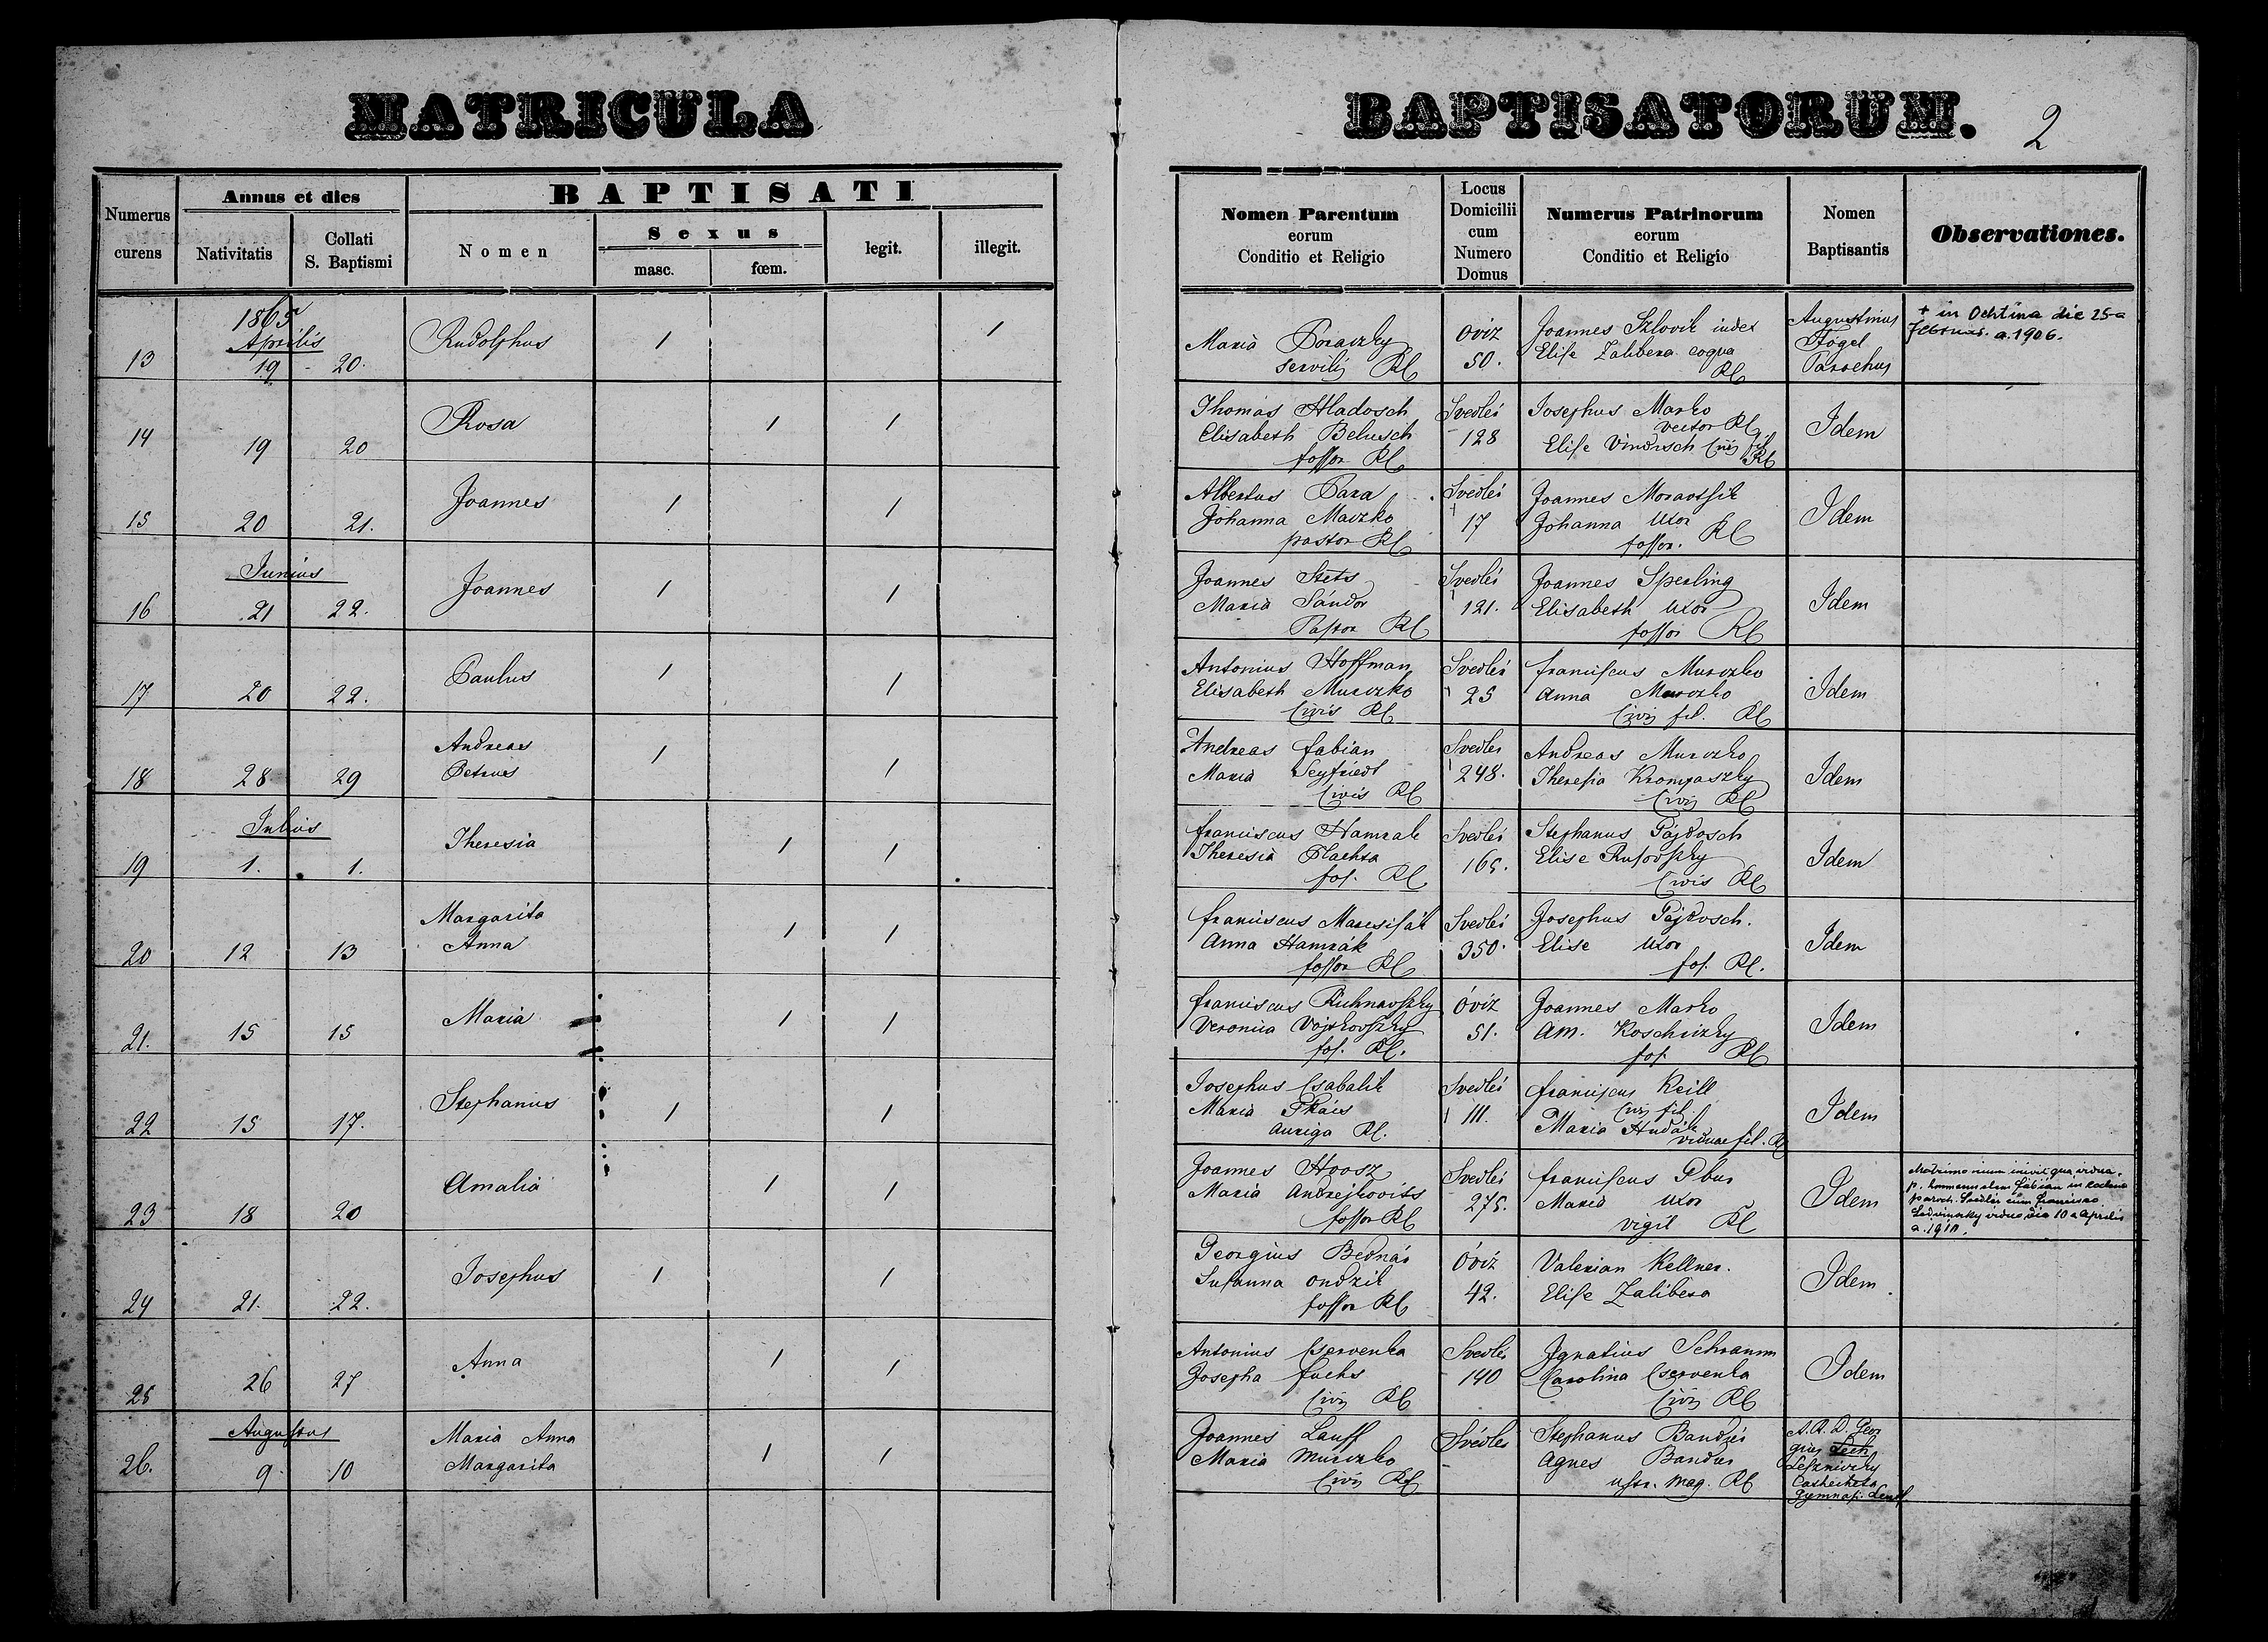 MATRICULA BAPTISATORUM. 2
Numerus curens
Annus et dies
Nativitatis
Collati S. Baptismi
BAPTISATI
Nomen
Sexus
masc.
fœm.
legit.
illegit.
Nomen Parentum eorum Conditio et Religio
Locus Domicilii cum Numero Domus
Numerus Patrinorum eorum Conditio et Religio
Nomen Baptisantis
Observationes.
1865
Aprilis
13 19 20. Rudolphus 1 1
Maria servilis RC
Óviz 50.
Joannes Szlovik index
Elise Zalibera coqua RC
Augustinus Fógel Parochus
+ in Ochtina die 25-a
februar. a. 1906.
14 19 20 Rosa 1 1
Thomás Hladosch
Elisabeth Belusch
fossor RC
Svedlér 128
Josephus Marko
vector RC
Elise Vindisch Civis fil RC
Idem
15 20 21. Joannes 1 1
Albertus Para
Johanna Maczko
pastor RC
Svedlér 17
Joannes
Johanna uxor RC
fossor.
Idem
Junius
16 21 22. Joannes 1 1
Joannes Stets
Maria Sándor
Pastor RC
Svedlér 121.
Joannes Sperling
Elisabeth uxor
fossor RC
Idem
17 20 22. Paulus 1 1
Antonius Hoffman
Elisabeth Murczko
Civis RC
Svedlér 25
Franciscus Murczko
Anna Murczko
Civis fil. RC
Idem
18 28 29 Andreas Petrus 1 1
Andreas Fabian
Maria Seyfriedt
Civis RC
Svedler 248.
Andreas Murczko
Theresia Krompaszky
Civis RC
Idem
Julius
19 1. 1. Theresia 1 1
Franciscus Hamrak
Theresia Plachta
fos. RC
Svedlér 165.
Stephanus Pajdosch
Elise Rusovszky
Civis RC
Idem
20 12 13 Margarita Anna 1 1
Franciscus
Anna Hamrák
fossor RC
Svedlér 350.
Josephus Pajdosch.
Elise uxor
fos. RC.
Idem
21. 15 15 Maria 1 1
Franciscus
Veronica
fos. RC.
Óviz 51.
Joannes Marko
Am. Koschiczky
fos. RC
Idem
22 15 17. Stephanus 1 1
Josephus Csabalik
Maria
auriga RC.
Svedlér 111.
Franciscus Keill
Civis fil.
Maria Hudák
viduae fil. RC
Idem
23 18 20 Amalia 1 1
Joannes Hoosz
Maria Andrejkovits
fossor RC
Svedlér 275.
Franciscus Gbur
Maria uxor
vigil RC
Idem
Matrimonium inivit qua vidua
p. Fabian in
paroch. Svedlér cum Francisco
viduo die 10 a Aprilis
a. 191
24 21. 22. Josephus 1 1
Georgius Bednár
Susanna Ondzik
fossor RC
Óviz 42.
Valerian Kellner.
Elise Zalibera
Idem.
25 26 27 Anna 1 1
Antonius Cservenka
Josepha Fuchs
Civis RC
Svedlér 140
Ignatius Schramm
Carolina Cservenka
Civis RC
Idem
Augustus
26. 9 10 Maria Anna Margarita 1 1
Joannes Lauff
Maria Murczko
Civis RC
Svédler
Stephanus Bandzér
Agnes
mag. RC
A. R. D. Georgius
Catheheta
Gymnasi.